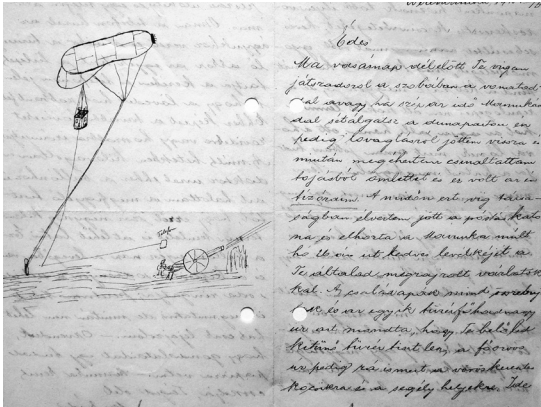 Telefon
Édes
Ma vasárnap délelőtt Te vigan
játszadozol a szobában a vonatod
dal avagy ha szép az idő Mamuká
dal sétálgatsz a dunaparton én
pedig lovaglásról jöttem vissza s
miután megéheztem csináltattam
tojásból omlettet és ez volt az én
tizóraim. A mindén ért vig társa
ságban elvertem jött a postás kato
na és elhozta a Mamuka mult
hó 26 én irt kedves levelkéjét a
Te általad megrajzolt
kal. A családapád mind
és az egyik tüzérfőhadnagy
ur azt mondta, hogy Te belőled
kitünő tüzértiszt lesz, a főorvos
ur pedig rá ismert a vöröskeresztes
kocsikra és a segély helyekre. Ide